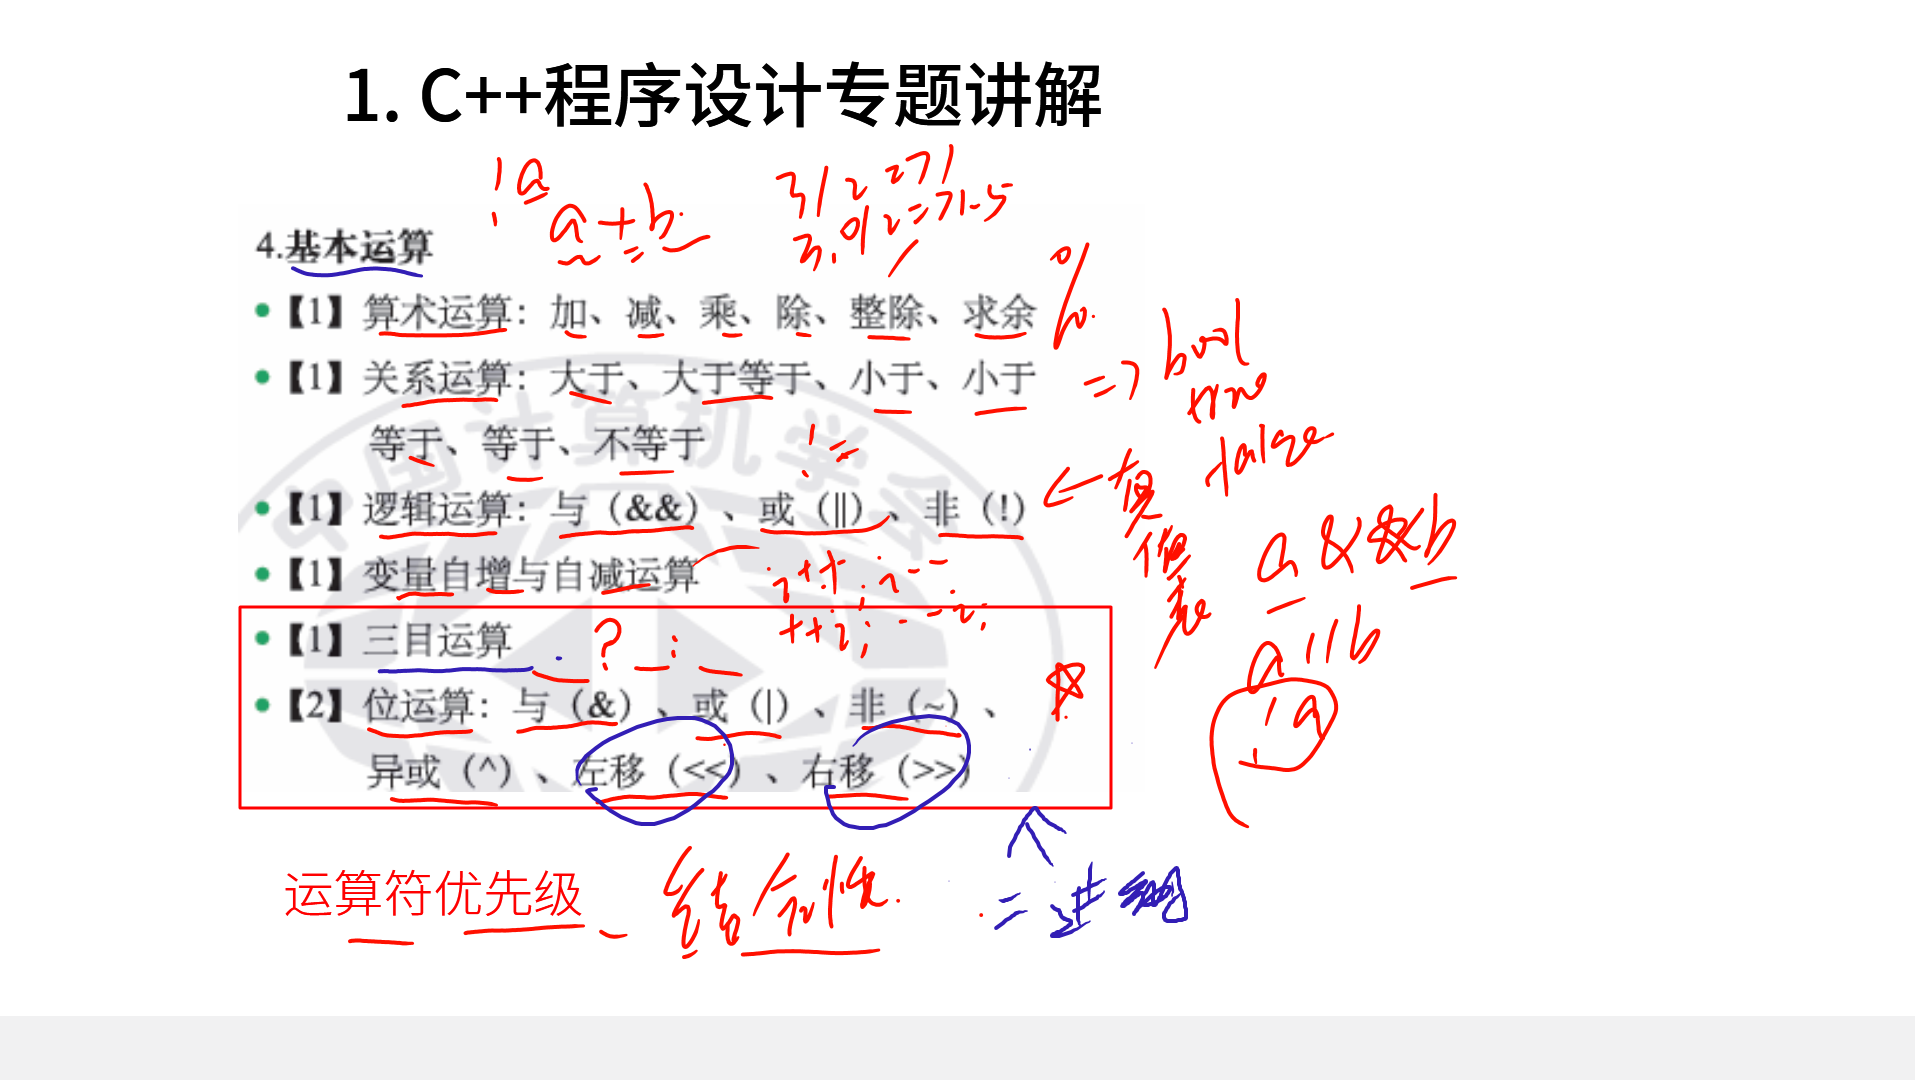 1. C++程序设计专题讲解
!a
a+b
3/2 =>1
3.0/2=>1.5
4.基本运算
【1】算术运算：加、减、乘、除、整除、求余
%
【1】关系运算：大于、大于等于、小于、小于
=> bool
true
false
等于、等于、不等于
!=
【1】逻辑运算：与（&&）、或（||）、非（!）
← 真值表
a && b
a || b
!a
【1】变量自增与自减运算
i++; i--
++i; --i;
【1】三目运算
? :
【2】位运算：与（&）、或（|）、非（~）、
异或（^）、左移（<<）、右移（>>）
运算符优先级、结合性
二进制
中国计算机学会